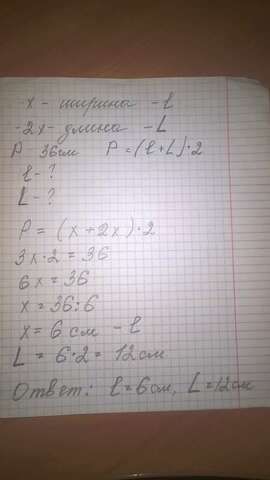 x - ширина - l
2x - длина - L
P 36см P = (l+L)·2
l - ?
L - ?
P = (x + 2x)·2
3x·2 = 36
6x = 36
x = 36:6
x = 6 см - l
L = 6·2 = 12см
Ответ: l = 6см, L = 12см